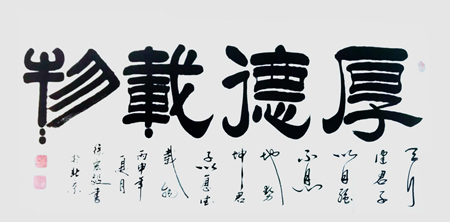 厚德載物
天行
健君子
以自強
不息
地勢
坤君
子以厚德
載物
丙申年
夏月
書
於北京